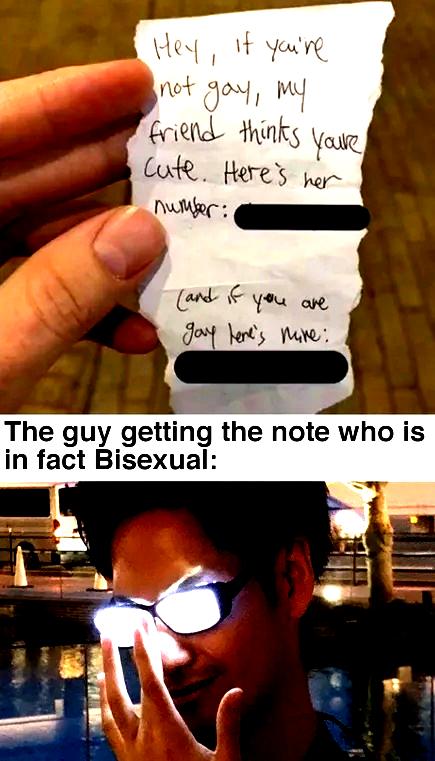 Hey, if you're
not gay, my
friend thinks you're
cute. Here's her
number:
(and if you are
gay here's mine:
The guy getting the note who is
in fact Bisexual: